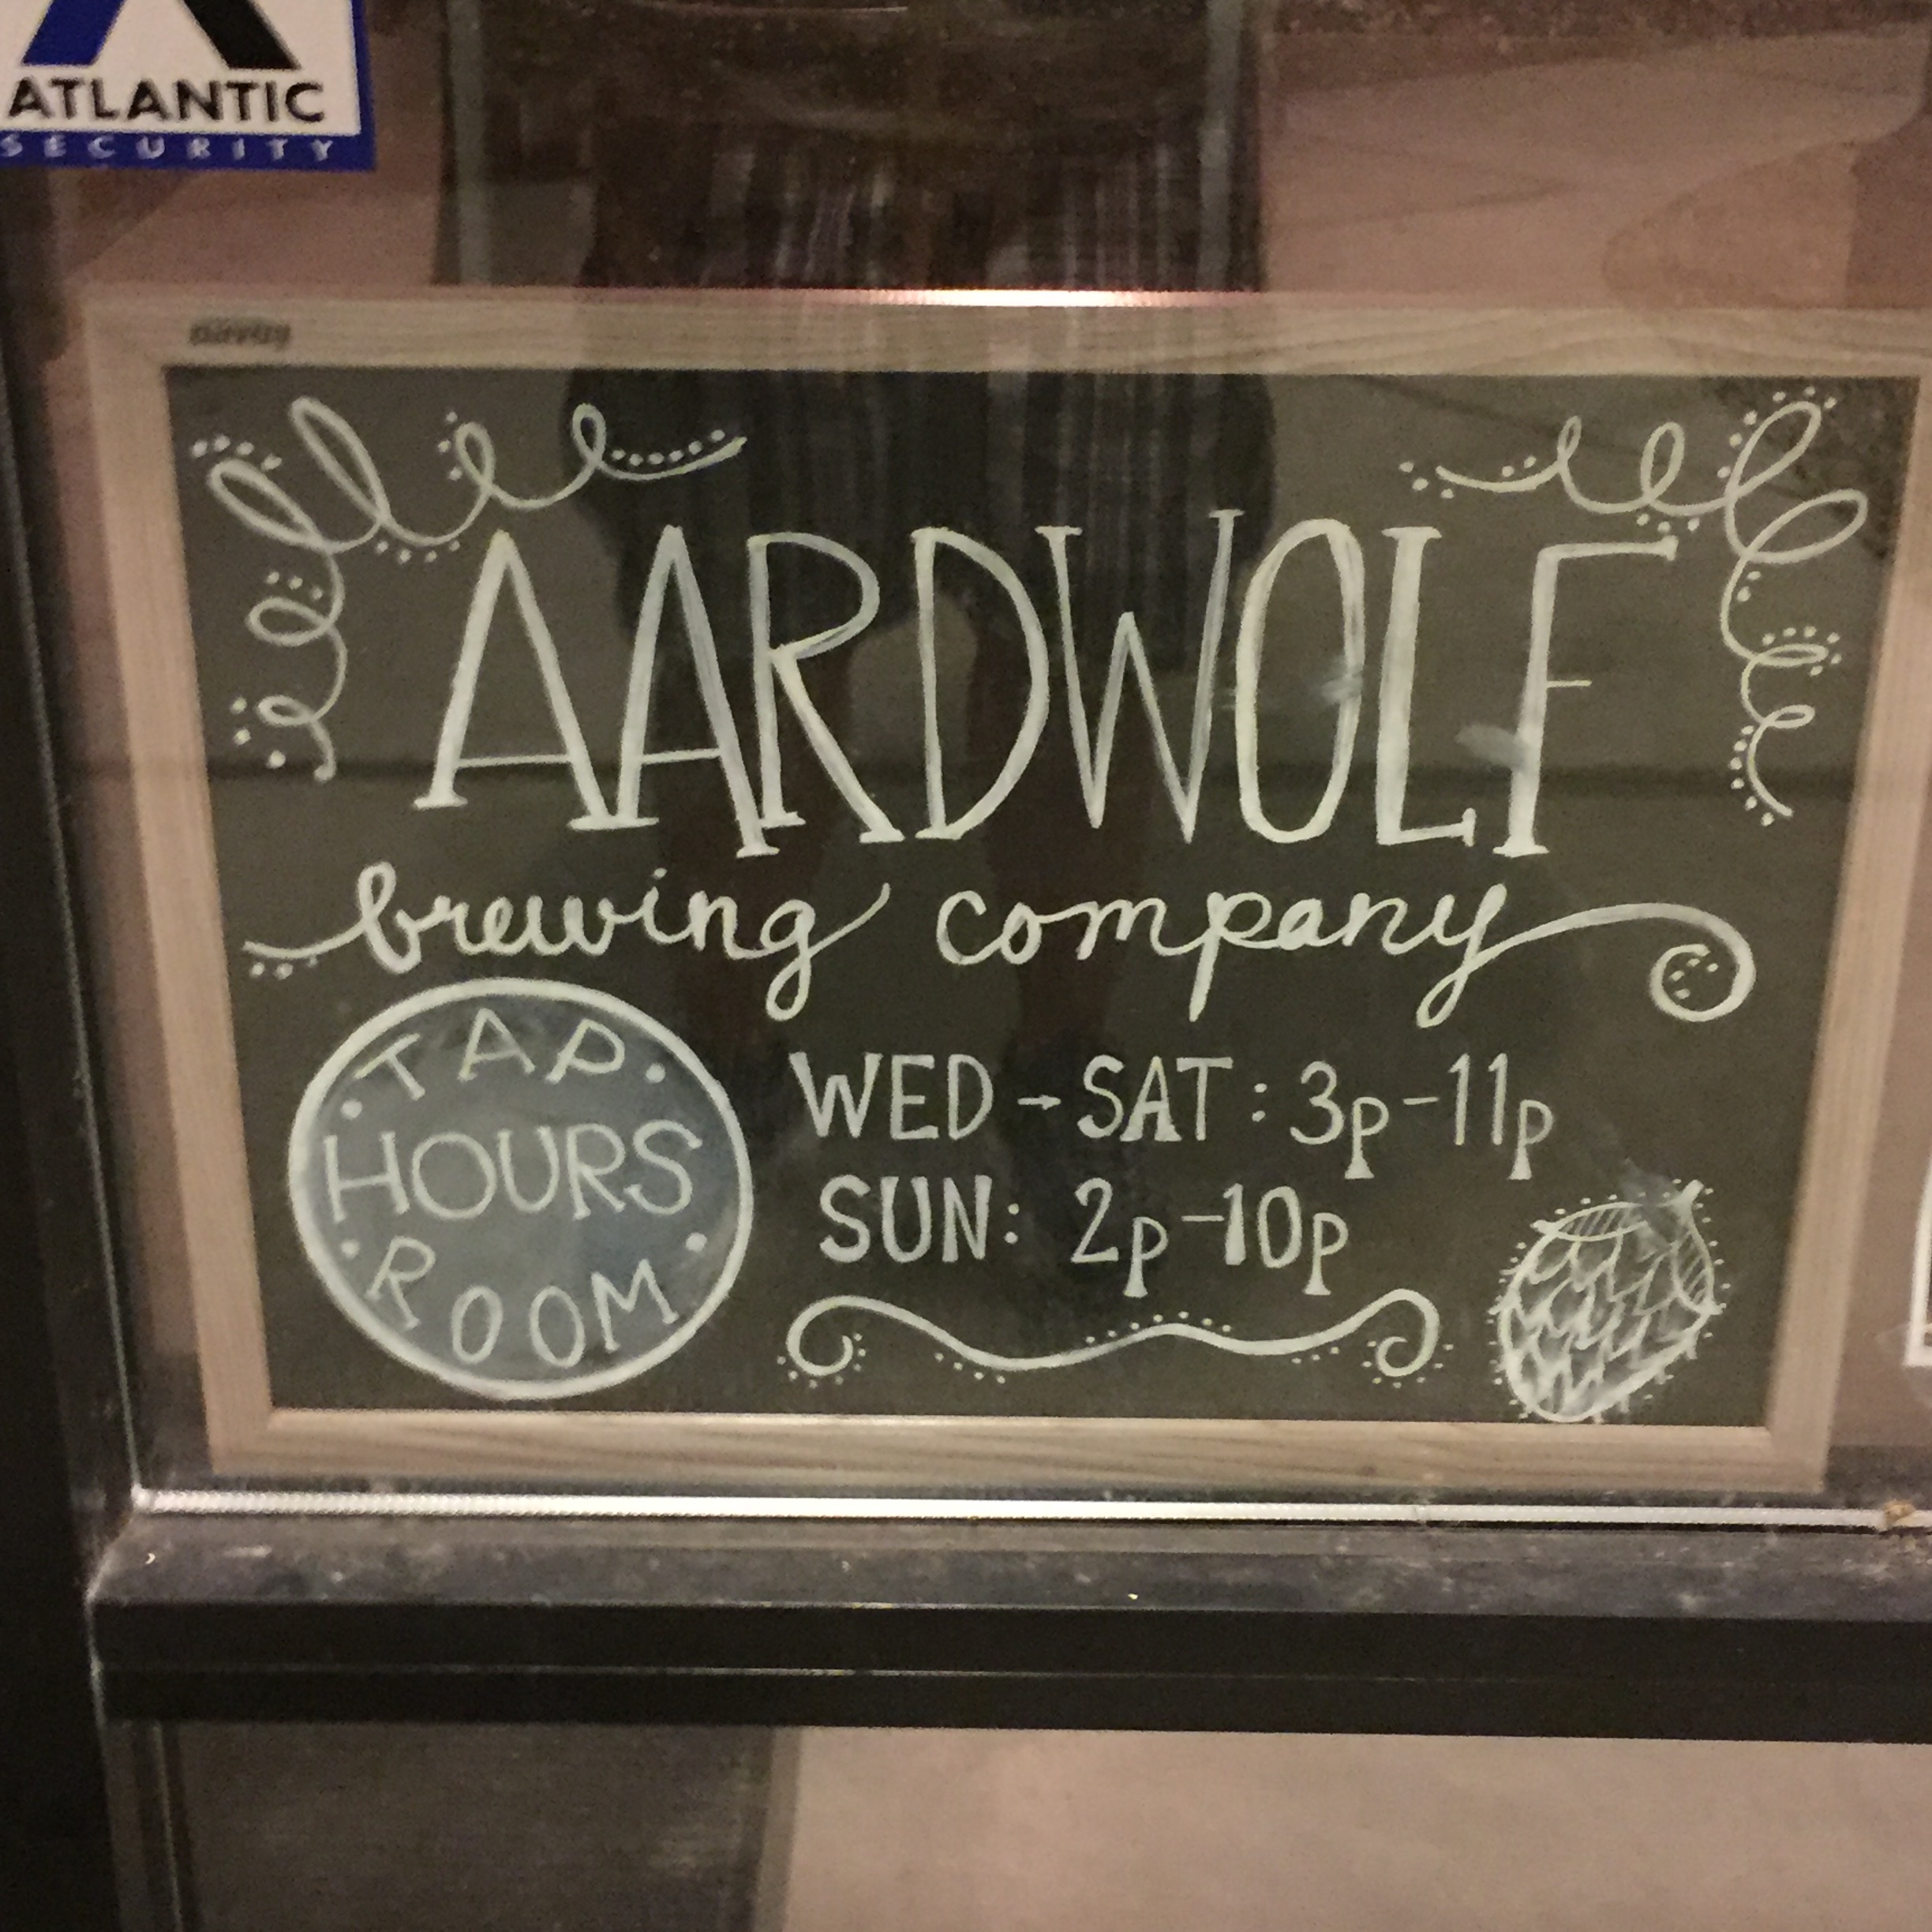 ATLANTIC
SECURITY
AARDWOLF
brewing company
TAP
HOURS
ROOM
WED → SAT : 3p - 11p
SUN: 2p - 10p